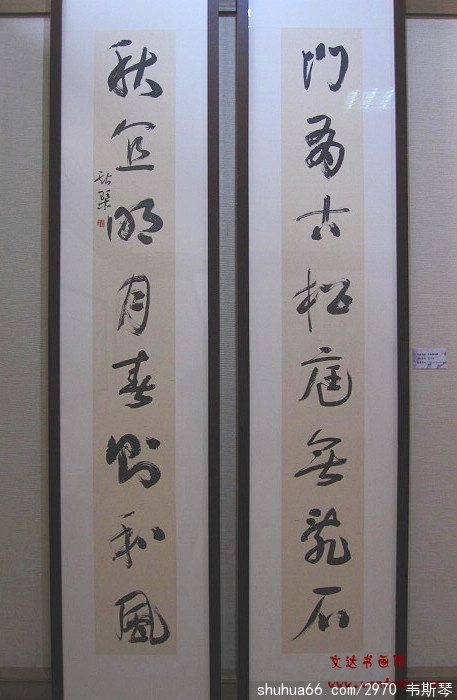 門有古松庭無亂石
秋宜明月春則和風
斯琴
文达书画网
shuhua66.com/2970 韦斯琴